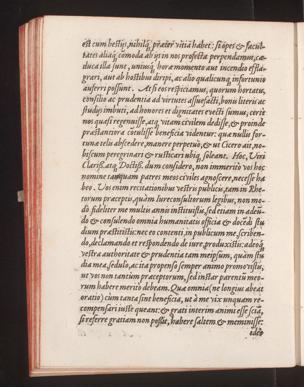 est cum bestijs, nihilq́; præter vitia habet: si opes & facul-
tates aliaq́; cõmoda ab ijs in nos profecta perpendamus, ca-
duca illa sunt, uniusq́; horæ momento aut incendio efflã-
grari, aut ab hostibus diripi, ac alio qualicunq́; infortunio
auferri possunt. At si eos respiciamus, quorum hortatu,
consilio ac prudentia ad virtutes assuefacti, bonis literis ac
studijs imbuti, ad honores et dignitates evecti sumus, certè
nos quasi regenuisse, atq́; vitam civilem dedisse, & proinde
præstantiora cõtulisse beneficia videntur: quæ nullis for-
tunæ telis absↄedere, manere perpetuò, & ut Cicero ait, no-
biscum peregrinari & rusticari ubiq́; soleant. Hoc, Viri
Clariss. atq́; Doctiss. dum considero, non immeritò vos hoc
nomine tanquam patres meos civiles agnoscere, necesse ha
beo. Vos enim recitationibus vestris publicis, tam in Rhe-
torum præceptis, quàm Iureconsultorum legibus, non mo-
dò fideliter me multis annis instituistis, sed etiam in adeũ-
do & consulendo omnia humanitatis officia & docẽdi stu
dium præstitistis: nec eo contenti, in publicum me, scriben-
do, declamando et respondendo de iure, produxistis: adeoq́;
vestra authoritate & prudentia tam meipsum, quàm stu
dia mea, sedulò, ac ita propenso semper animo promovistis,
ut vos non tantùm præceptorum, sed instar parentũ meo-
rum habere meritò debeam. Quæ omnia (ne longius abeat
oratio) cùm tanta sint beneficia, ut à me vix unquam re-
compensari iustè queant: & grati interim animi esse sciã,
si referre gratiam non possit, habere saltem & meminisse:
ideo